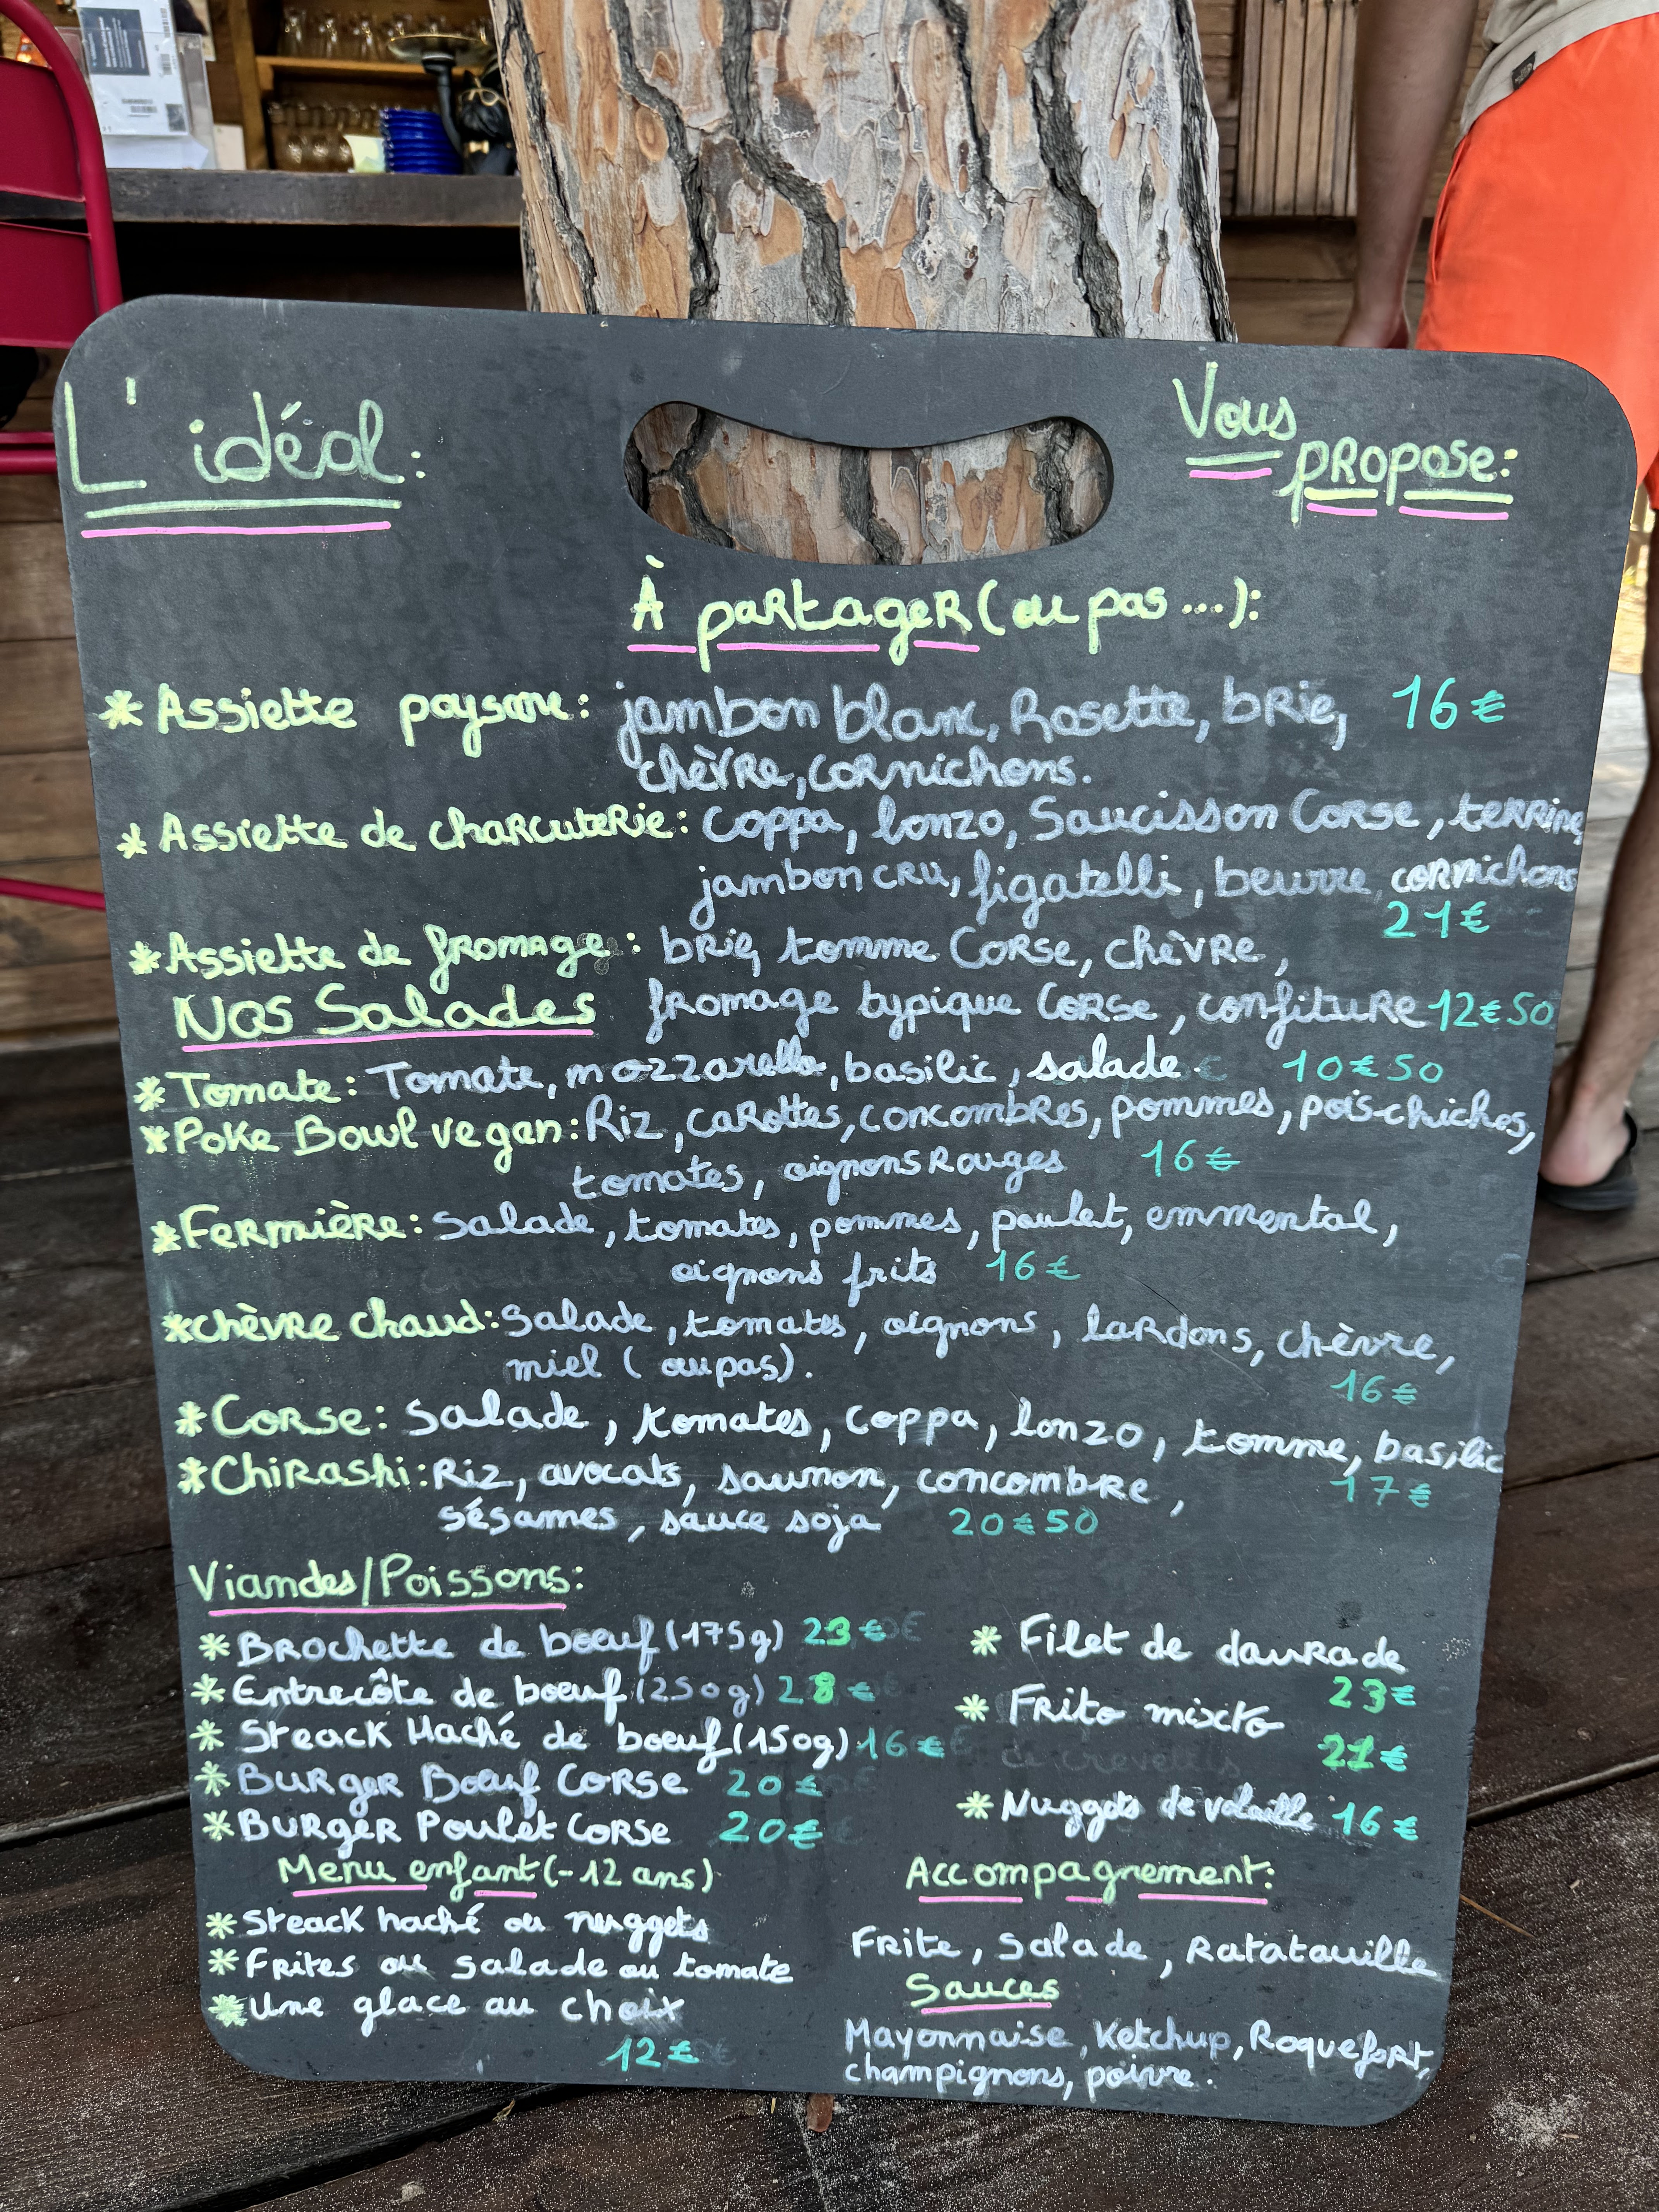 L'idéal:
Vous
propose:
À partager (ou pas ...):
* Assiette paysane: jambon blanc, Rosette, brie, 16€
chèvre, cornichons.
* Assiette de charcuterie: coppa, lonzo, Saucisson Corse, terrine,
jambon cru, figatelli, beurre, cornichons
21€
* Assiette de fromage: brie, tomme Corse, chèvre,
fromage typique Corse, confiture 12€50
Nos Salades
* Tomate: Tomate, mozzarella, basilic, salade. 10€50
* Poke Bowl vegan: Riz, carottes, concombres, pommes, pois-chiches,
tomates, oignons Rouges 16€
* Fermière: Salade, tomates, pommes, poulet, emmental,
oignons frits 16€
* chèvre chaud: Salade, tomates, oignons, lardons, chèvre,
miel (ou pas).
16€
* Corse: Salade, tomates, coppa, lonzo, tomme, basilic
17€
* Chirashi: Riz, avocats, saumon, concombre,
sésames, sauce soja 20€50
Viandes/Poissons:
* Brochette de boeuf (175g) 23€
* Entrecôte de boeuf (250g) 28€
* Steack Haché de boeuf (150g) 16€
* Burger Boeuf Corse 20€
* Burger Poulet Corse 20€
* Filet de daurade
23€
* Frito mixto
21€
* Nuggets de volaille 16€
Menu enfant (-12 ans)
* Steack haché ou nuggets
* Frites ou salade ou tomate
* Une glace au choix
12€
Accompagnement:
Frite, Salade, Ratatouille
Sauces
Mayonnaise, Ketchup, Roquefort,
champignons, poivre.